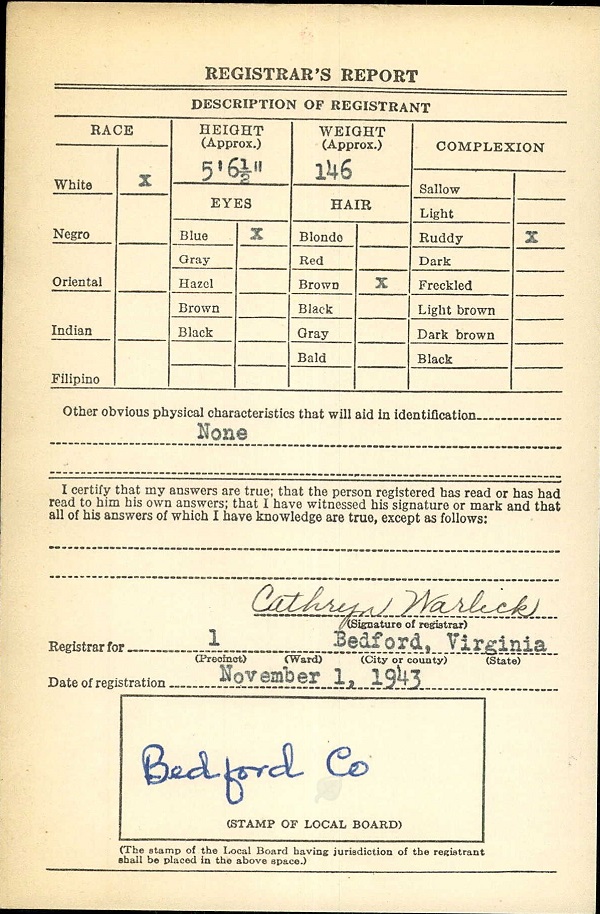 REGISTRAR'S REPORT
DESCRIPTION OF REGISTRANT
RACE
HEIGHT
(Approx.)
WEIGHT
(Approx.)
COMPLEXION
5'6½"
146
White X
Sallow
EYES
HAIR
Light
Negro
Blue X
Blonde
Ruddy X
Gray
Red
Dark
Oriental
Hazel
Brown X
Freckled
Brown
Black
Light brown
Indian
Black
Gray
Dark brown
Bald
Black
Filipino
Other obvious physical characteristics that will aid in identification
None
I certify that my answers are true; that the person registered has read or has had
read to him his own answers; that I have witnessed his signature or mark and that
all of his answers of which I have knowledge are true, except as follows:
Cathryn Warlick
(Signature of registrar)
Registrar for 1 Bedford, Virginia
(Precinct) (Ward) (City or county) (State)
Date of registration November 1, 1943
Bedford Co
(STAMP OF LOCAL BOARD)
(The stamp of the Local Board having jurisdiction of the registrant
shall be placed in the above space.)